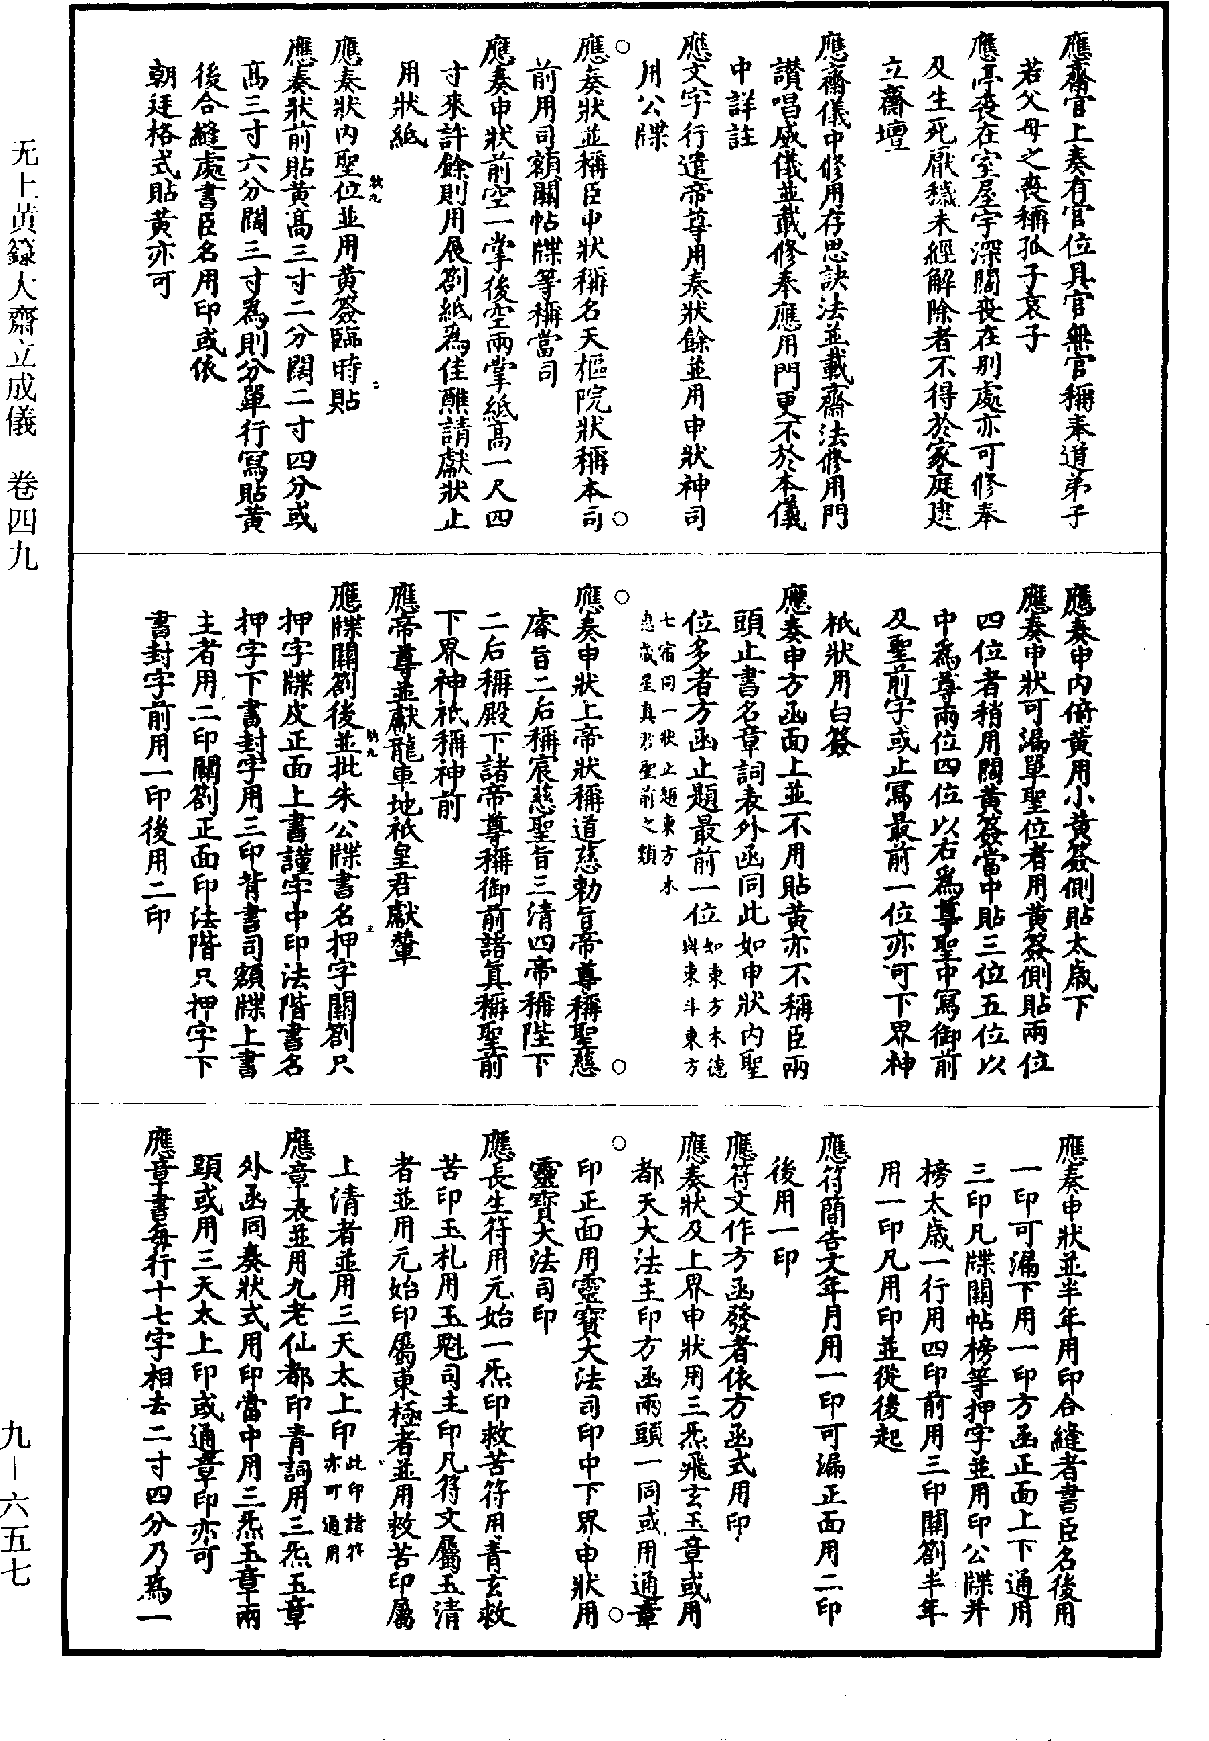 应齋官上奏有官位具官無官稱奉道弟子
若父母之喪稱孤子哀子
應停喪在室屋宇深闊喪在別處亦可修奉
及生死厭穢未經解除者不得於家庭建
立齋壇
應齋儀中修用存思訣法並載齋法修用門
讃唱威儀並載修奉應用門更不於本儀
中詳註
應文字行遣帝尊用奏狀餘並用申狀神司
用公牒
應奏狀並稱臣申狀稱名天樞院狀稱本司
前用司額關帖牒等稱當司
應奏申狀前空一掌後空兩掌紙高一尺四
寸來許餘則用展劄紙為佳醮請獻狀止
用狀紙
應奏狀內聖位並用黃簽臨時貼
應奏狀前貼黃高三寸二分闊二寸四分或
高三寸六分闊三寸為則分單行寫貼黃
後合縫處書臣名用印或依
朝廷格式貼黃亦可
應奏申內脩黃用小黃簽側貼太歲下
應奏申狀可漏單聖位者用黃簽側貼兩位
四位者稍用闊黃簽當中貼三位五位以
中為尊兩位四位以右為尊聖中寫御前
及聖前字或止寫最前一位亦可下界神
祇狀用白簽
應奏申方函面上並不用貼黃亦不稱臣兩
頭止書名章詞表外函同此如申狀內聖
位多者方函止題最前一位如東方木德
與東斗東方
七宿同一狀止題東方木
德歲星真君聖前之類
應奏申狀上帝狀稱道慈勅旨帝尊稱聖慈
睿旨二后稱宸慈聖旨三清四帝稱陛下
二后稱殿下諸帝尊稱御前諸真稱聖前
下界神祇稱神前
應帝尊並獻龍車地祇皇君獻輦
應牒關劄後並批朱公牒書名押字關劄只
押字牒皮正面上書謹字中印法階書名
押字下書封字用三印背書司額牒上書
主者用二印關劄正面印法階只押字下
書封字前用一印後用二印
應奏申狀並半年用印合縫者書臣名後用
一印可漏下用一印方函正面上下通用
三印凡牒關帖榜等押字並用印公牒并
榜太歲一行用四印前用三印關劄半年
用一印凡用印並從後起
應符簡告文年月用一印可漏正面用二印
後用一印
應符文作方函發者依方函式用印
應奏狀及上界申狀用三炁飛玄玉章或用
都天大法主印方函兩頭一同或用通章
印正面用靈寶大法司印中下界申狀用
靈寶大法司印
應長生符用元始一炁印救苦符用青玄救
苦印玉札用玉魁司主印凡符文屬玉清
者並用元始印屬東極者並用救苦印屬
上清者並用三天太上印此印諸符
亦可通用
應章表並用九老仙都印青詞用三炁玉章
外函同奏狀式用印當中用三炁玉章兩
頭或用三天太上印或通章印亦可
應章書每行十七字相去二寸四分乃為一
无上黃籙大齋立成儀　卷四九
九—六五七